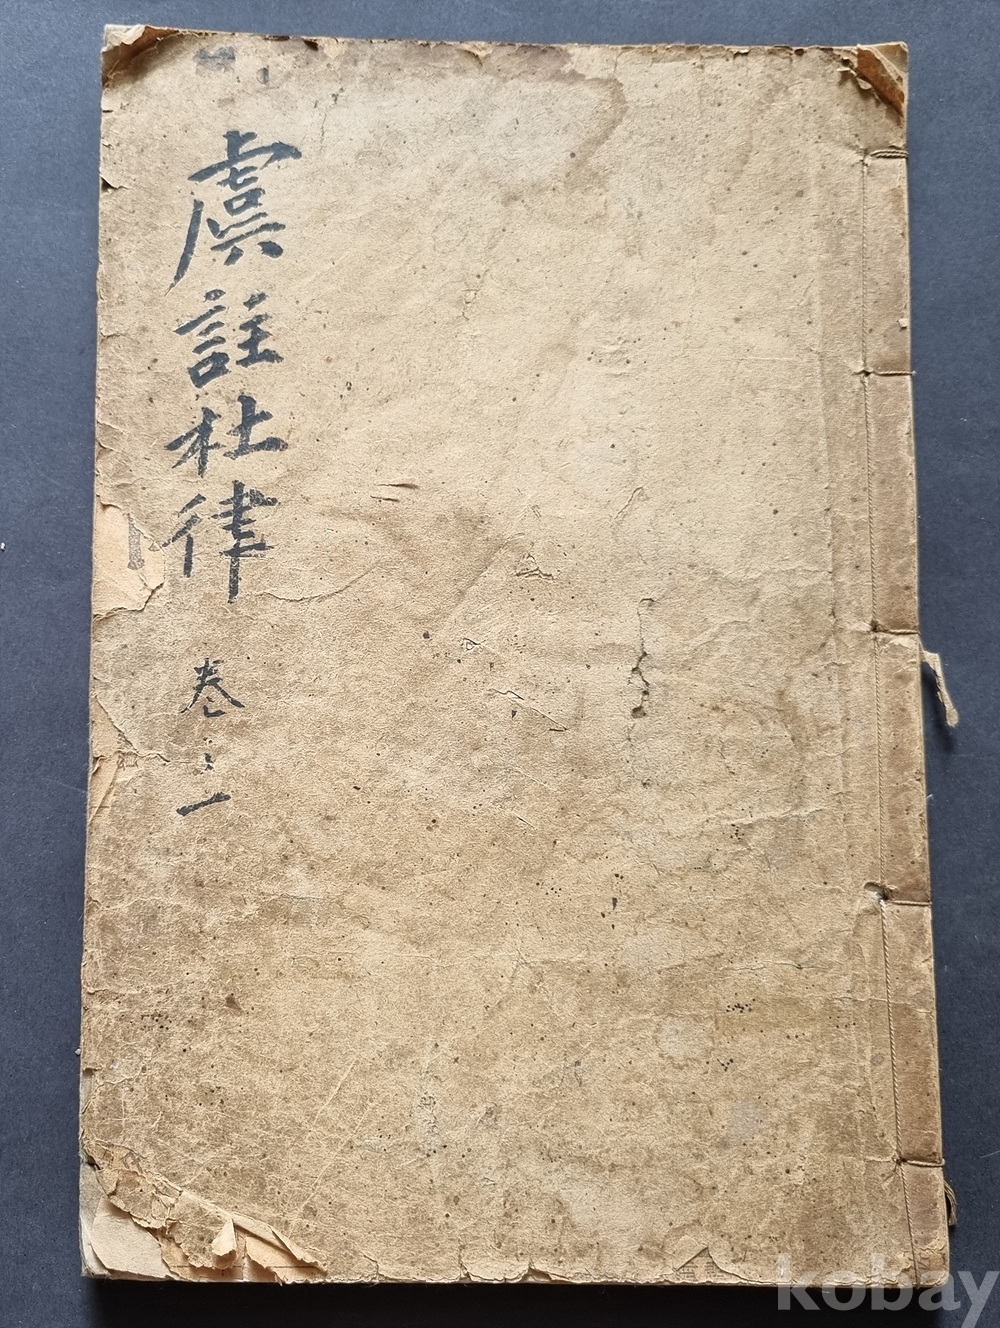 虞註杜律 卷之一
kobay